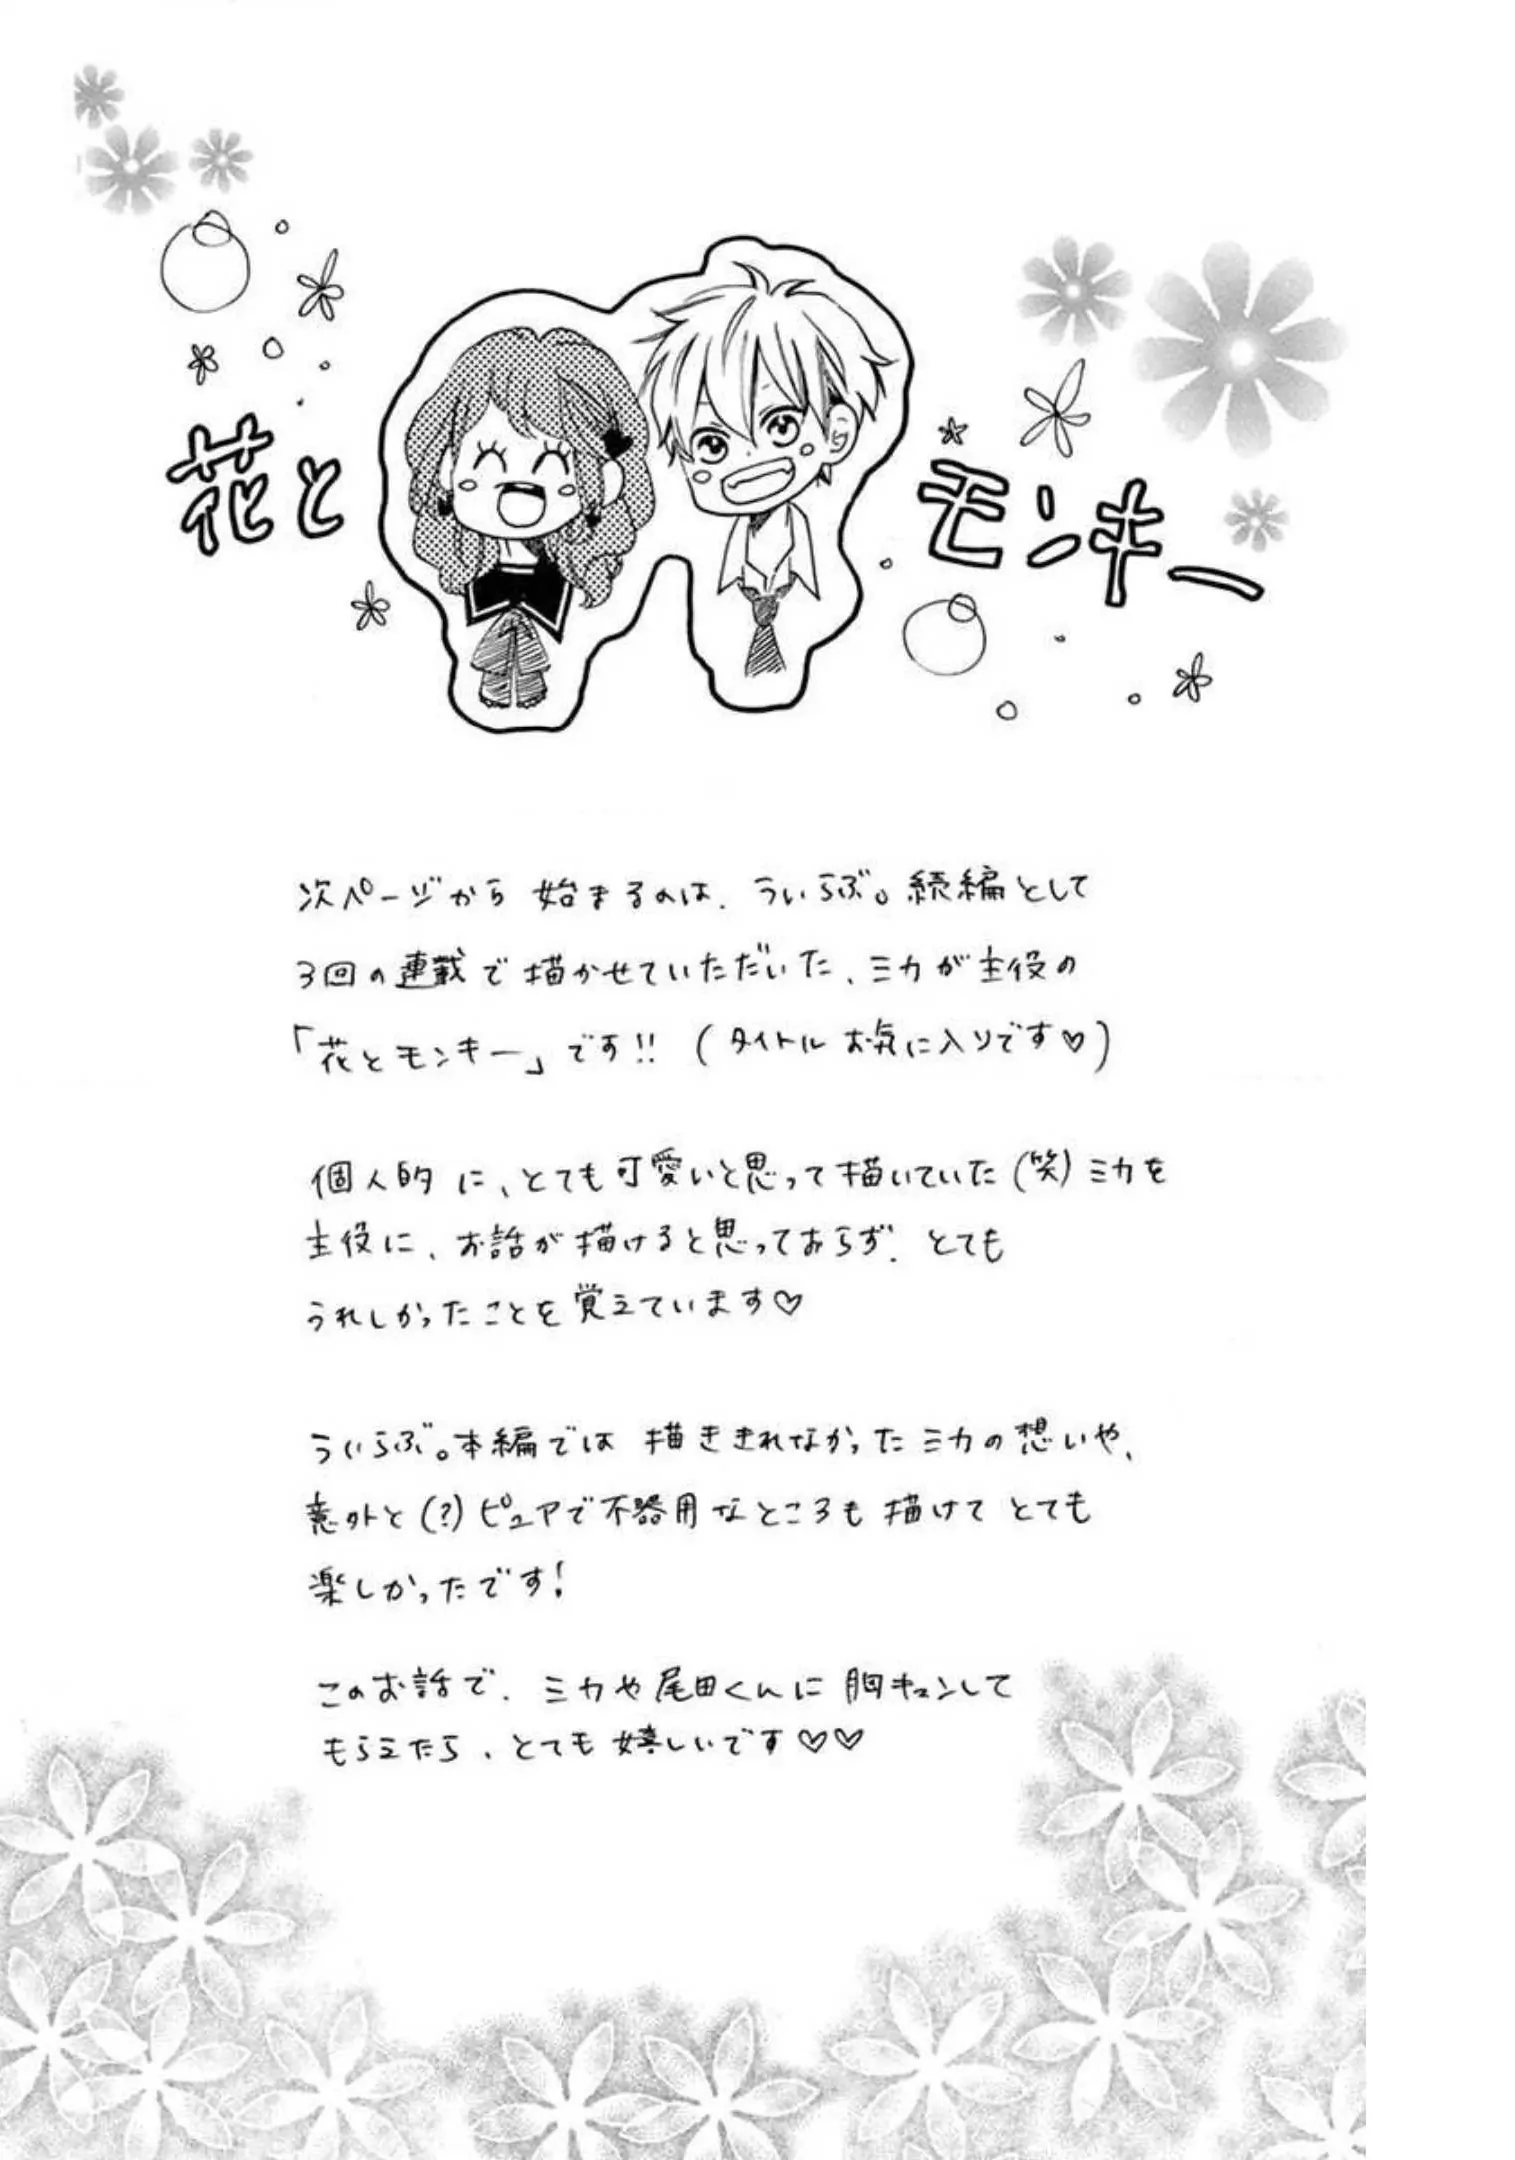 花と
モンキー
次ページから始まるのは、ういらぶ。続編として
3回の連載で描かせていただいた、ミカが主役の
「花とモンキー」です!! (タイトルお気に入りです♡)
個人的に、とても可愛いと思って描いていた(笑)ミカを
主役に、お話が描けると思っておらず、とても
うれしかったことを覚えています♡
ういらぶ。本編では描ききれなかったミカの想いや、
意外と(?)ピュアで不器用なところも描けてとても
楽しかったです!
このお話で、ミカや尾田くんに胸キュンして
もらえたら、とても嬉しいです♡♡